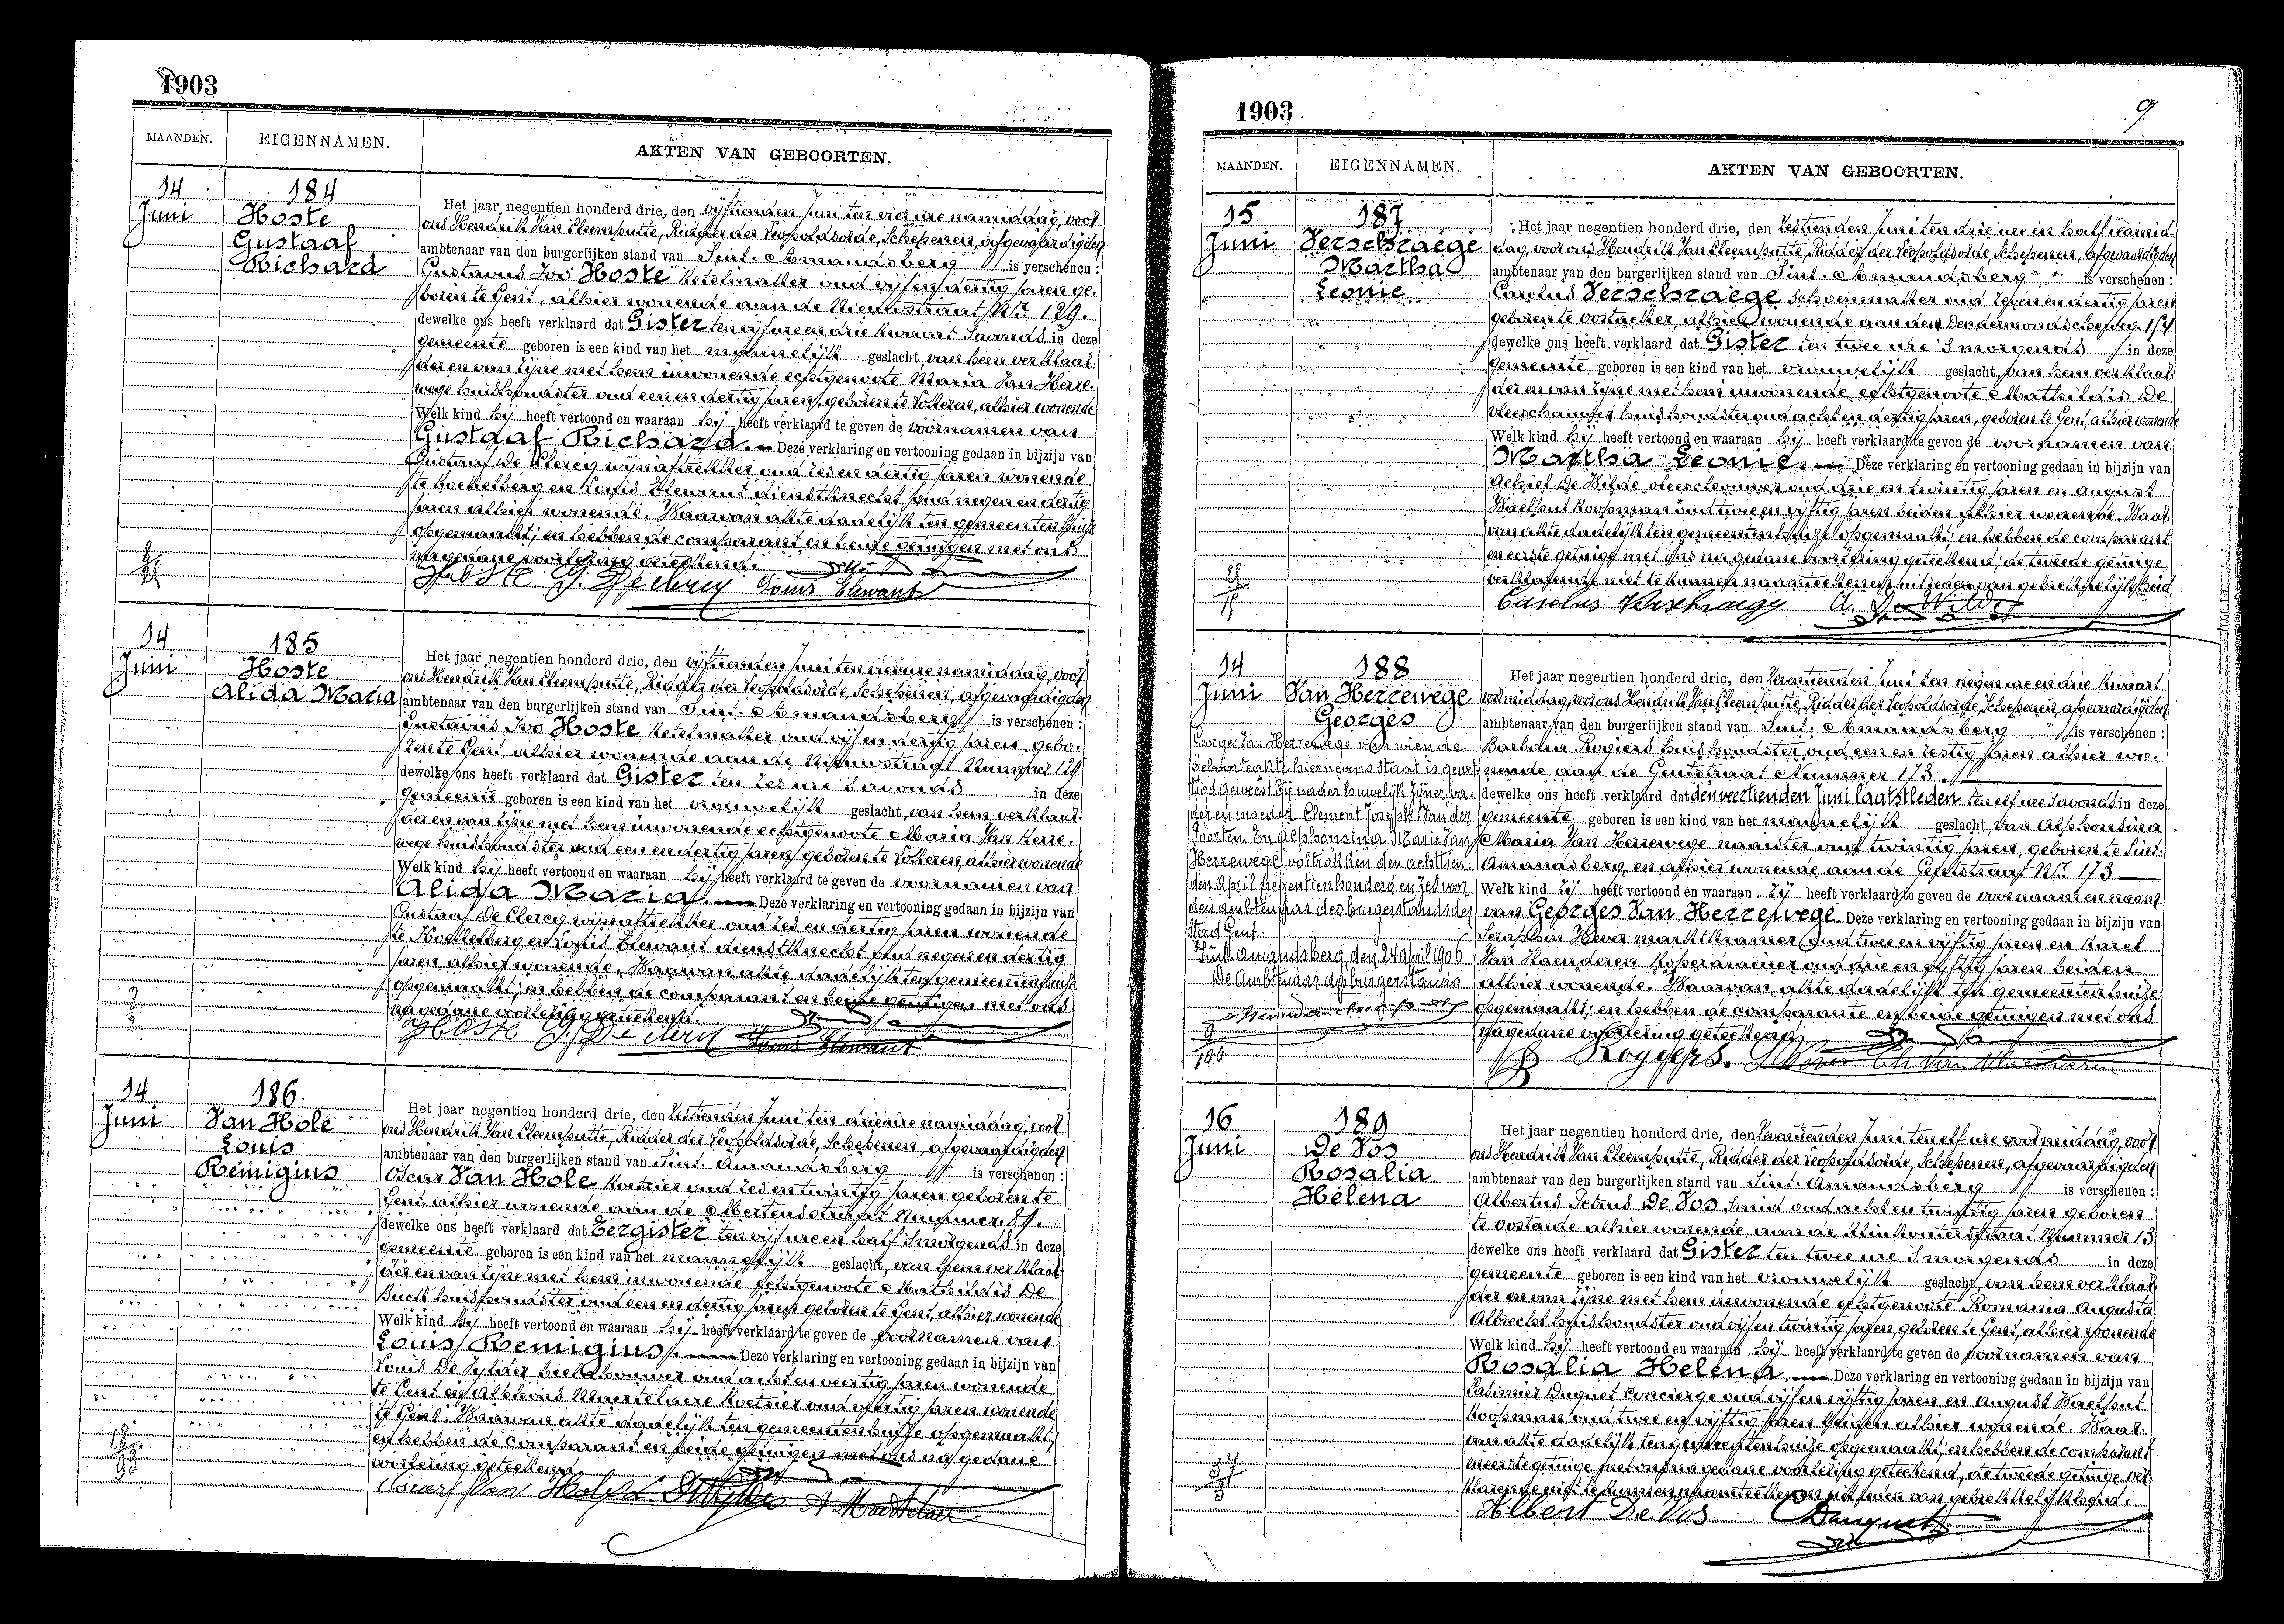 1903
MAANDEN. EIGENNAMEN. AKTEN VAN GEBOORTEN.
14 Juni
184
Hoste
Gustaaf
Richard
Het jaar negentien honderd drie, den vijftienden Juni ten vier ure namiddag, voor
ons Hendrik Van Cleemputte, Ridder der Leopoldsorde, Schepenen, afgevaardigden
ambtenaar van den burgerlijken stand van Sint-Amandsberg is verschenen :
Gustavus Ivo Hoste ketelmaker oud vijf en dertig jaren ge-
boren te Gent, alhier wonende aan de Nieuwstraat Nr. 129.
dewelke ons heeft verklaard dat Gister ten vijf ure en drie kwaart s'avonds in deze
gemeente geboren is een kind van het mannelijk geslacht, van hem verklaar-
der en van zijne met hem inwonende echtgenoote Maria Van Herre-
wege huishoudster oud een en dertig jaren, geboren te Lokeren, alhier wonende
Welk kind hij heeft vertoond en waaraan hij heeft verklaard te geven de voornamen van
Gustaaf Richard. Deze verklaring en vertooning gedaan in bijzijn van
Gustaaf De Clercq wijnaftrekker oud zes en dertig jaren wonende
te Koekelberg en Louis Elewaut dienstknecht oud negen en dertig
jaren alhier wonende. Waarvan akte dadelijk ten gemeentenhuize
opgemaakt; en hebben de comparant en beide getuigen met ons
na gedane voorlezing geteekend.
G. Declercq Louis Elewaut
14 Juni
185
Hoste
Alida Maria
Het jaar negentien honderd drie, den vijftienden Juni ten vier ure namiddag, voor
ons Hendrik Van Cleemputte, Ridder der Leopoldsorde, Schepenen, afgevaardigden
ambtenaar van den burgerlijken stand van Sint-Amandsberg is verschenen :
Gustavus Ivo Hoste ketelmaker oud vijf en dertig jaren gebo-
ren te Gent, alhier wonende aan de Nieuwstraat Nummer 129.
dewelke ons heeft verklaard dat Gister ten zes ure s'avonds in deze
gemeente geboren is een kind van het vrouwelijk geslacht, van hem verklaar-
der en van zijne met hem inwonende echtgenoote Maria Van Herre-
wege huishoudster oud een en dertig jaren, geboren te Lokeren, alhier wonende
Welk kind hij heeft vertoond en waaraan hij heeft verklaard te geven de voornamen van
Alida Maria. Deze verklaring en vertooning gedaan in bijzijn van
Gustaaf De Clercq wijnaftrekker oud zes en dertig jaren wonende
te Koekelberg en Louis Elewaut dienstknecht oud negen en dertig
jaren alhier wonende. Waarvan akte dadelijk ten gemeentenhuize
opgemaakt; en hebben de comparant en beide getuigen met ons
na gedane voorlezing geteekend.
Hoste G. De clercq Louis Elewaut
14 Juni
186
Van Hole
Louis
Remigius
Het jaar negentien honderd drie, den zestienden Juni ten drie ure namiddag, voor
ons Hendrik Van Cleemputte, Ridder der Leopoldsorde, Schepenen, afgevaardigden
ambtenaar van den burgerlijken stand van Sint-Amandsberg is verschenen :
Oscar Van Hole koetsier oud zes en twintig jaren geboren te
Gent, alhier wonende aan de Mertensstraat Nummer 87.
dewelke ons heeft verklaard dat Eergister ten vijf ure en half s'morgends in deze
gemeente geboren is een kind van het mannelijk geslacht, van hem verklaar-
der en van zijne met hem inwonende echtgenoote Mathildis De
Buck huishoudster oud een en dertig jaren geboren te Gent, alhier wonende
Welk kind hij heeft vertoond en waaraan hij heeft verklaard te geven de voornamen van
Louis Remigius. Deze verklaring en vertooning gedaan in bijzijn van
Louis De beeldhouwer oud acht en veertig jaren wonende
te Gent en Alphons Martelaere koetsier oud veertig jaren wonende
te Gent. Waarvan akte dadelijk ten gemeentenhuize opgemaakt;
en hebben de comparant en beide getuigen met ons na gedane
voorlezing geteekend.
Oscar Van Hole
1903
9
MAANDEN. EIGENNAMEN. AKTEN VAN GEBOORTEN.
15 Juni
187
Verschraege
Martha
Leonie
Het jaar negentien honderd drie, den zestienden Juni ten drie ure en half namid-
dag, voor ons Hendrik Van Cleemputte, Ridder der Leopoldsorde, Schepenen, afgevaardigden
ambtenaar van den burgerlijken stand van Sint-Amandsberg is verschenen :
Carolus Verschraege schoenmaker oud zeven en dertig jaren
geboren te Oostacker, alhier wonende aan den Dendermondschesteenweg
dewelke ons heeft verklaard dat Gister ten twee ure s'morgends in deze
gemeente geboren is een kind van het vrouwelijk geslacht, van hem verklaar-
der en van zijne met hem inwonende echtgenoote Mathildis De
vleeschauwer huishoudster oud acht en dertig jaren, geboren te Gent, alhier wonende
Welk kind hij heeft vertoond en waaraan hij heeft verklaard te geven de voornamen van
Martha Leonie. Deze verklaring en vertooning gedaan in bijzijn van
Achiel De Wilde vleeschouwer oud drie en twintig jaren en August
Waelput koopman oud twee en vijftig jaren beiden alhier wonende. Waar-
van akte dadelijk ten gemeentenhuize opgemaakt; en hebben de comparant
en eerste getuige met ons na gedane voorlezing geteekend; de tweede getuige
verklarende niet te kunnen naamteekenen uit reden van gebrekkelijkheid
Carolus Verschraege A. De Wilde
14 Juni
188
Van Herrewege
Georges
Georges Van Herrewege van wien de
geboorteakte hiernevens staat is gewet-
tigd geweest bij nader huwelijk zijner va-
der en moeder Clement Joseph Van der
Goorten En Alphonsina Marie Van
Herrewege voltrokken den achttien-
den April negentien honderd en zes voor
den ambtenaar des burgerstands der
stad Gent.
Sint Amandsberg, den 24 April 1906
De Ambtenaar des burgerstands
Het jaar negentien honderd drie, den zeventienden Juni ten negen ure en drie kwaart
voormiddag, voor ons Hendrik Van Cleemputte, Ridder der Leopoldsorde, Schepenen, afgevaardigden
ambtenaar van den burgerlijken stand van Sint-Amandsberg is verschenen :
Barbara Rogiers huishoudster oud een en zestig jaren alhier wo-
nende aan de Gentstraat Nummer 173.
dewelke ons heeft verklaard dat den veertienden Juni laatstleden ten elf ure s'avonds in deze
gemeente geboren is een kind van het mannelijk geslacht, van Alphonsina
Maria Van Herrewege naaister oud twintig jaren, geboren te Sint-
Amandsberg, en alhier wonende aan de Gentstraat Nr. 173
Welk kind zij heeft vertoond en waaraan zij heeft verklaard te geven de voornaam en naam
van Georges Van Herrewege. Deze verklaring en vertooning gedaan in bijzijn van
Seraphin Hever marktkramer oud twee en vijftig jaren en Karel
Van Haenderen koperdraaier oud drie en vijftig jaren beiden
alhier wonende. Waarvan akte dadelijk ten gemeentenhuize
opgemaakt; en hebben de comparante en beide getuigen met ons
na gedane voorlezing geteekend.
B Roggers.
16 Juni
189
De Vos
Rosalia
Helena
Het jaar negentien honderd drie, den zeventienden Juni ten elf ure voormiddag, voor
ons Hendrik Van Cleemputte, Ridder der Leopoldsorde, Schepenen, afgevaardigden
ambtenaar van den burgerlijken stand van Sint-Amandsberg is verschenen :
Albertus Petrus De Vos smid oud acht en twintig jaren geboren
te Oostende alhier wonende aan de Klinkouterstraat Nummer 13
dewelke ons heeft verklaard dat Gister ten twee ure s'morgends in deze
gemeente geboren is een kind van het vrouwelijk geslacht, van hem verklaar-
der en van zijne met hem inwonende echtgenoote Romania Augusta
Albrecht huishoudster oud vijf en twintig jaren, geboren te Gent, alhier wonende
Welk kind hij heeft vertoond en waaraan hij heeft verklaard te geven de voornamen van
Rosalia Helena. Deze verklaring en vertooning gedaan in bijzijn van
Casimier Duquet concierge oud vijf en vijftig jaren en August Waelput
koopman oud twee en vijftig jaren beiden alhier wonende. Waar-
van akte dadelijk ten gemeentenhuize opgemaakt; en hebben de comparant
en eerste getuige met ons na gedane voorlezing geteekend, de tweede getuige ver-
klarende niet te kunnen naamteekenen uit reden van gebrekkelijkheid.
Albert De Vos